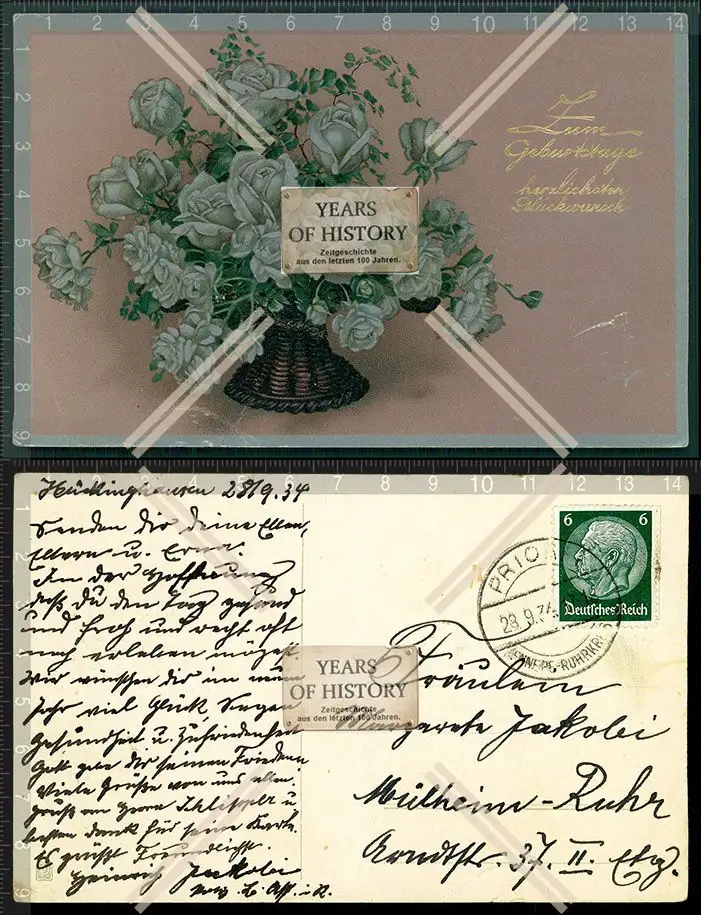 1 2 3 4 5 6 7 8 9 10 11 12 13 14
2
3
4
5
6
7
8
9
Zum
Geburtstage
herzlichsten
Glückwunsch
YEARS
OF HISTORY
Zeitgeschichte
aus den letzten 100 Jahren.
3 4 5 6 7 8 9 10 11 12 13 14
Hücklinghausen 28/9.34
Senden dir deine
Eltern u. Erna.
In der Hoffnung
daß du den Tag gesund
und froh und recht oft
noch erleben mögest
wir wünschen dir im neuen
Jahr viel Glück Segen
Gesundheit u. Zufriedenheit
Gott gebe dir seinen Frieden
Viele Grüße von uns allen.
Gruß an Herrn u
besten dank für seine Karte.
Es grüßt Freundlichst.
Heinrich Jakobi
6 6
Deutsches Reich
PRIO
28.9.34
ENNEPE-RUHRKR
YEARS
OF HISTORY
Zeitgeschichte
aus den letzten 100 Jahren.
Fräulein
Margarete Jakobi
Mülheim-Ruhr
Arndtstr. 37. II. Etg.